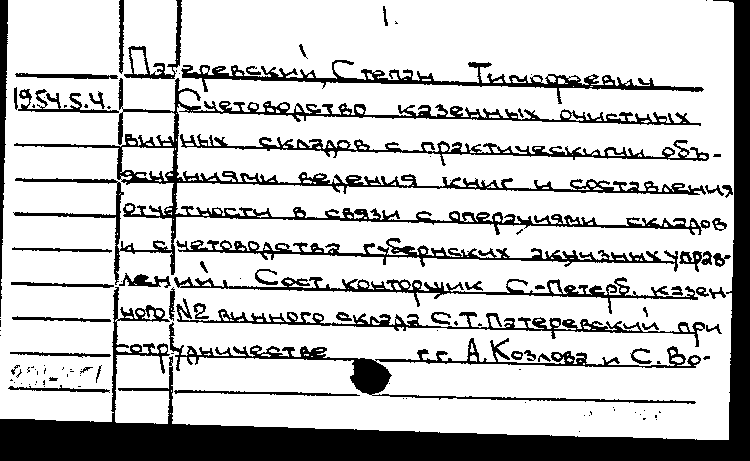 1.
Патеревский, Степан Тимофеевич
19.54.5.4. Счетоводство казенных очистных
винных складов с практическими объ-
яснениями ведения книг и составления
отчетности в связи с операциями складов
и счетоводства губернских акцизных управ-
лений. Сост. конторщик С.-Петерб. казен-
ного № винного склада С.Т.Патеревский при
сотрудничестве г.г. А.Козлова и С.Во-